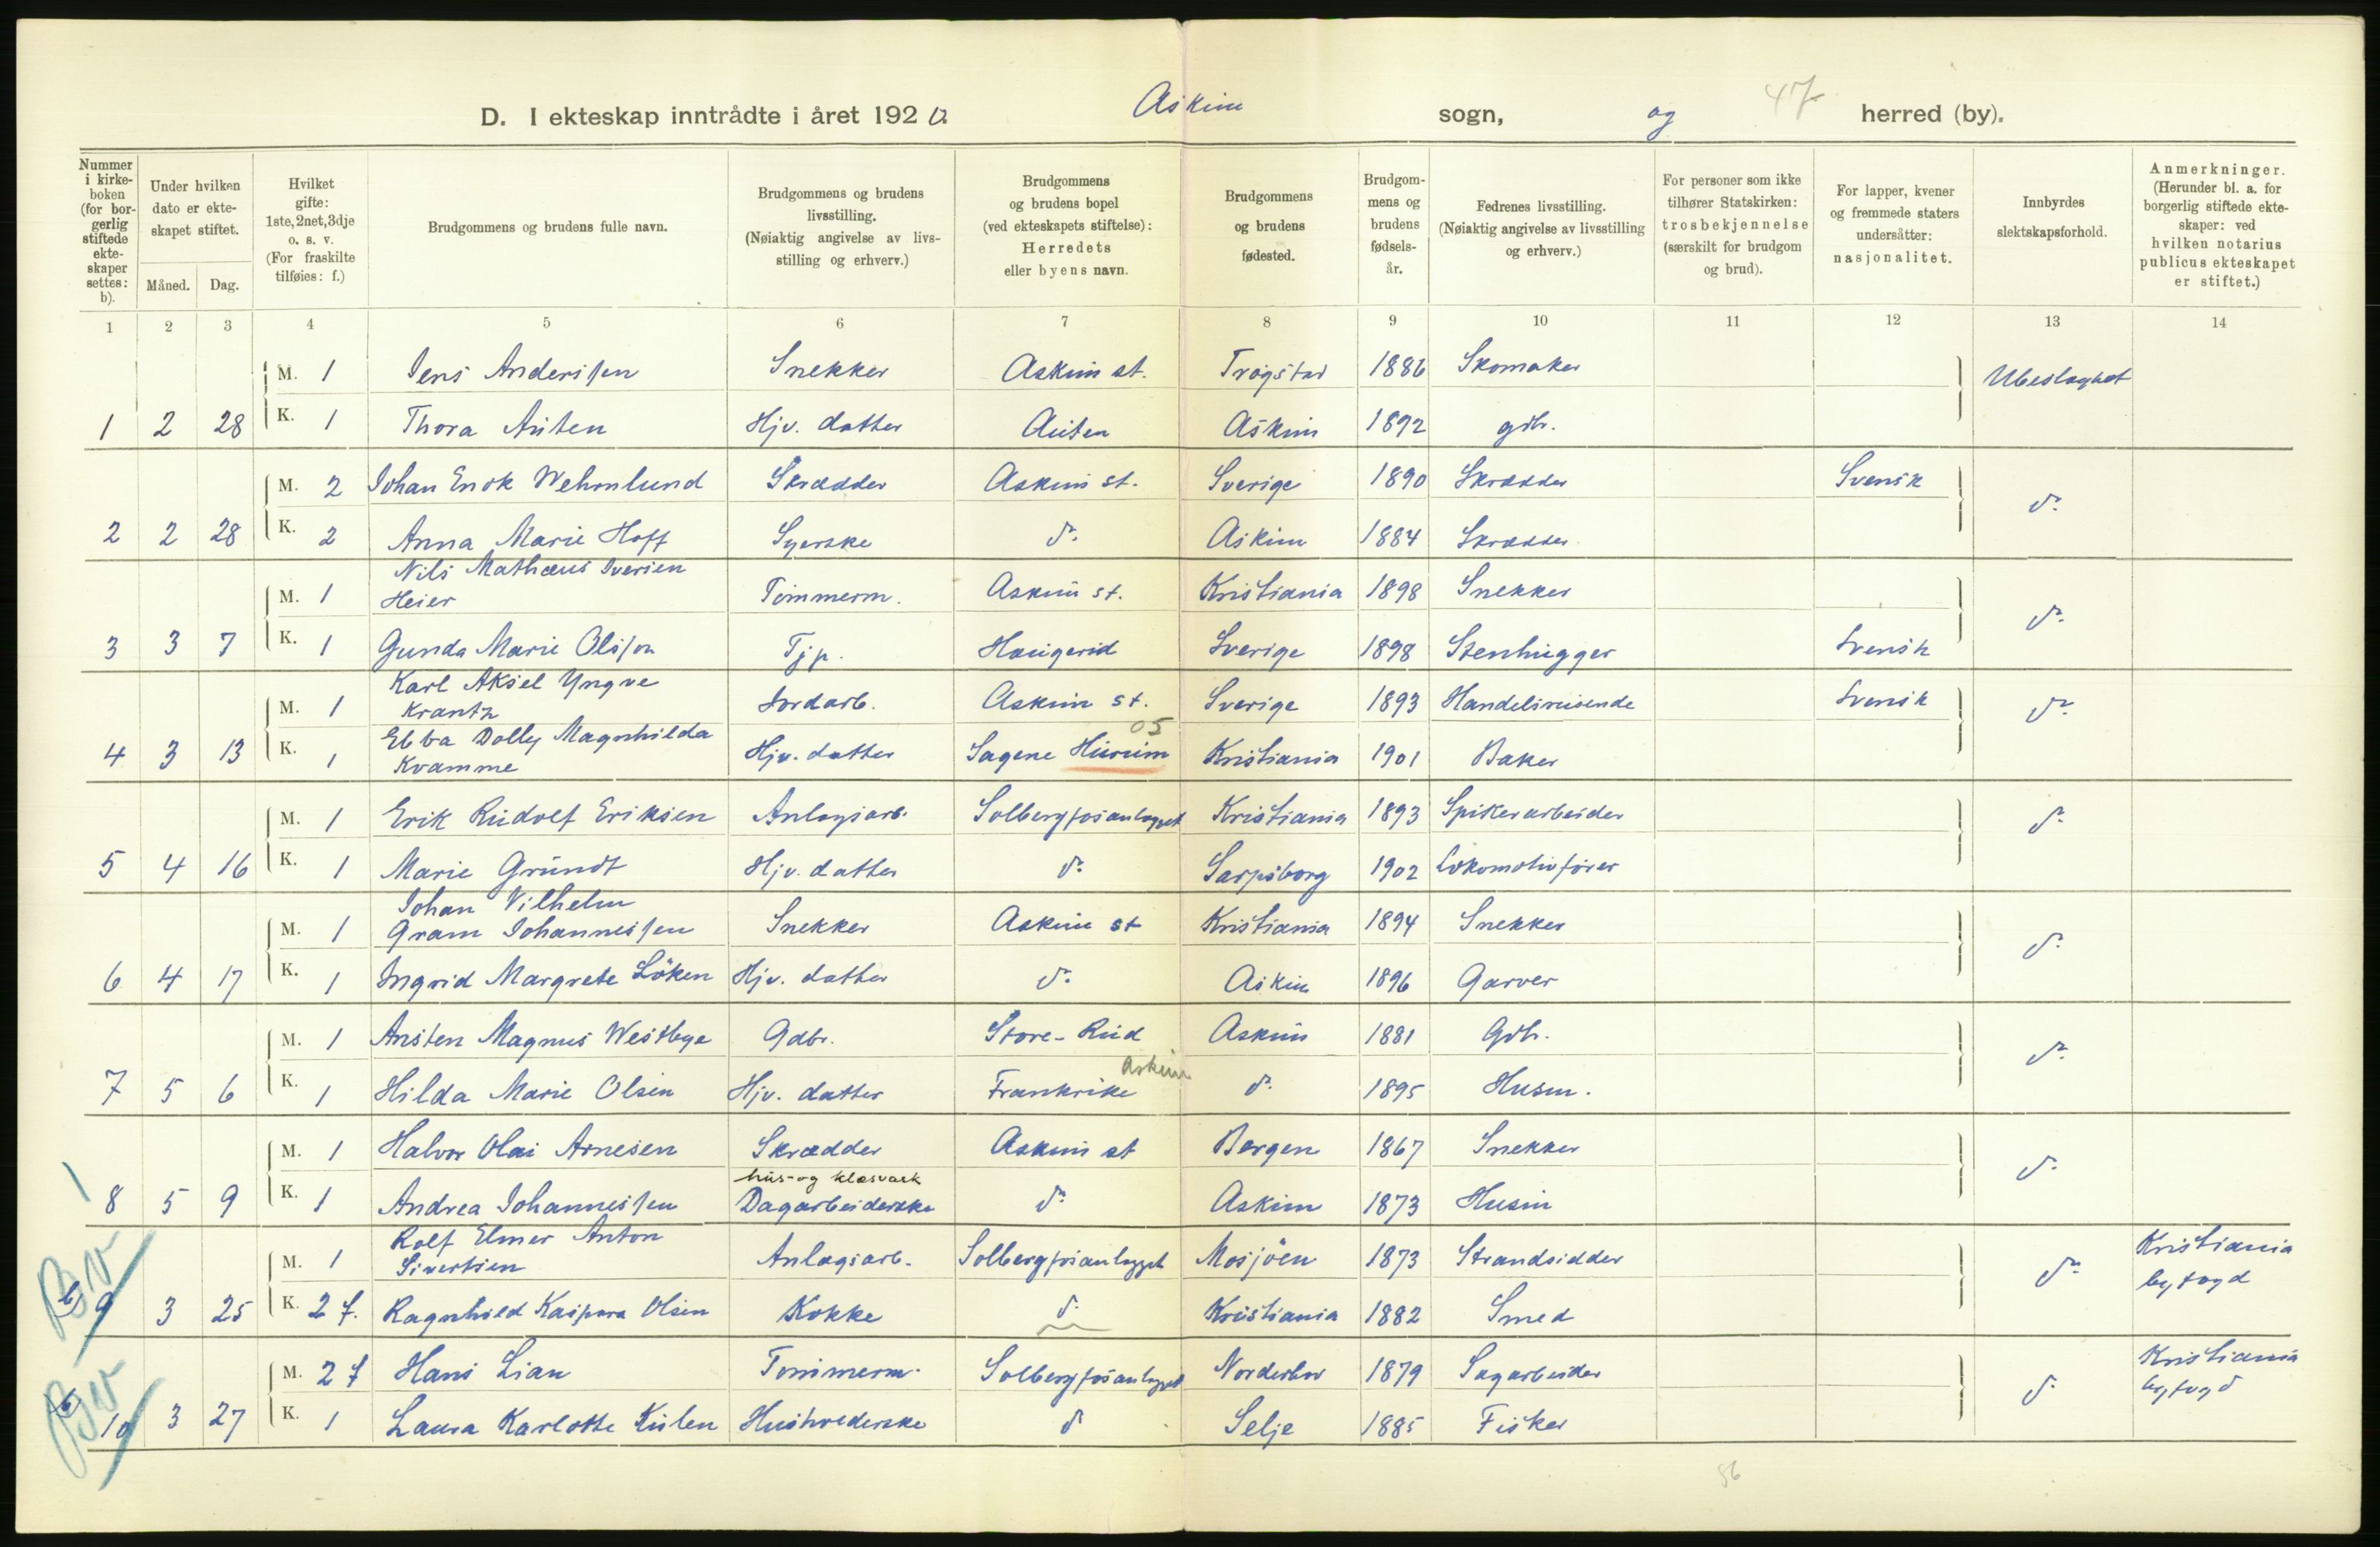 D. I ekteskap inntrådte i året 1920. Askim sogn, og 47 herred (by).
Nummer i kirkeboken (for borgerlig stiftede ekteskaper settes: b).
Under hvilken dato er ekteskapet stiftet.
Måned. Dag.
Hvilket gifte: 1ste, 2net, 3dje o. s. v. (For fraskilte tilføies: f.)
Brudgommens og brudens fulle navn.
Brudgommens og brudens livsstilling. (Nøiaktig angivelse av livsstilling og erhverv.)
Brudgommens og brudens bopel (ved ekteskapets stiftelse): Herredets eller byens navn.
Brudgommens og brudens fødested.
Brudgommens og brudens fødselsår.
Fedrenes livsstilling. (Nøiaktig angivelse av livsstilling og erhverv.)
For personer som ikke tilhører Statskirken: trosbekjennelse (særskilt for brudgom og brud).
For lapper, kvener og fremmede staters undersåtter: nasjonalitet.
Innbyrdes slektskapsforhold.
Anmerkninger. (Herunder bl. a. for borgerlig stiftede ekteskaper: ved hvilken notarius publicus ekteskapet er stiftet.)
1 2 3 4 5 6 7 8 9 10 11 12 13 14
M. 1 Jens Anderssen Snekker Askim st. Trøgstad 1886 Skomaker Ubeslægtet
1 2 28 K. 1 Thora Auten Hjv. datter Auten Askim 1892 gdbr.
M. 2 Johan Enok Wehmlund Skrædder Askim st. Sverige 1890 Skrædder Svensk do
2 2 28 K. 2 Anna Marie Hoff Syerske do Askim 1884 Skrædder
Nils Mathæus Iversen
M. 1 Heier Tømmerm. Askim st. Kristiania 1898 Snekker do
3 3 7 K. 1 Gunda Marie Olsson Tjp. Haugerud Sverige 1898 Stenhugger Svensk
Karl Aksel Yngve
M. 1 Krantz Jordarb. Askim st. Sverige 1893 Handelsreisende Svensk do
05
Ebba Dolly Magnhilda
4 3 13 K. 1 Kvamme Hjv. datter Sagene Hurum Kristiania 1901 Baker
M. 1 Erik Rudolf Eriksen Anlægsarb. Solbergfosanlegget Kristiania 1893 Spikerarbeider do
5 4 16 K. 1 Marie Grundt Hjv. datter do Sarpsborg 1902 Lokomotivfører
Johan Vilhelm
M. 1 Gram Johannessen Snekker Askim st Kristiania 1894 Snekker do
6 4 17 K. 1 Ingrid Margrete Löken Hjv. datter do Askim 1896 Garver
M. 1 Ansten Magnus Westbye Gdbr. Store-Rud Askim 1881 Gdbr. do
Askim
7 5 6 K. 1 Hilda Marie Olsen Hjv. datter Frankrike do 1895 Husm.
M. 1 Halvor Olai Arnesen Skrædder Askim st Bergen 1867 Snekker do
hus- og klæsvask
8 5 9 K. 1 Andrea Johannessen Dagarbeiderske do Askim 1873 Husm
Rolf Elmer Anton Kristiania
M. 1 Sivertsen Anlægsarb. Solbergfosanlegget Mosjöen 1873 Strandsidder do byfogd
b 9 3 25 K. 2 f. Ragnhild Kaspara Olsen Kokke do Kristiania 1882 Smed
Kristiania
M. 2 f Hans Lian Tømmerm. Solbergfosanlegget Norderhov 1879 Sagarbeider do byfogd
b 10 3 27 K. 1 Laura Karlotte Kislen Husholderske do Selje 1885 Fisker
56